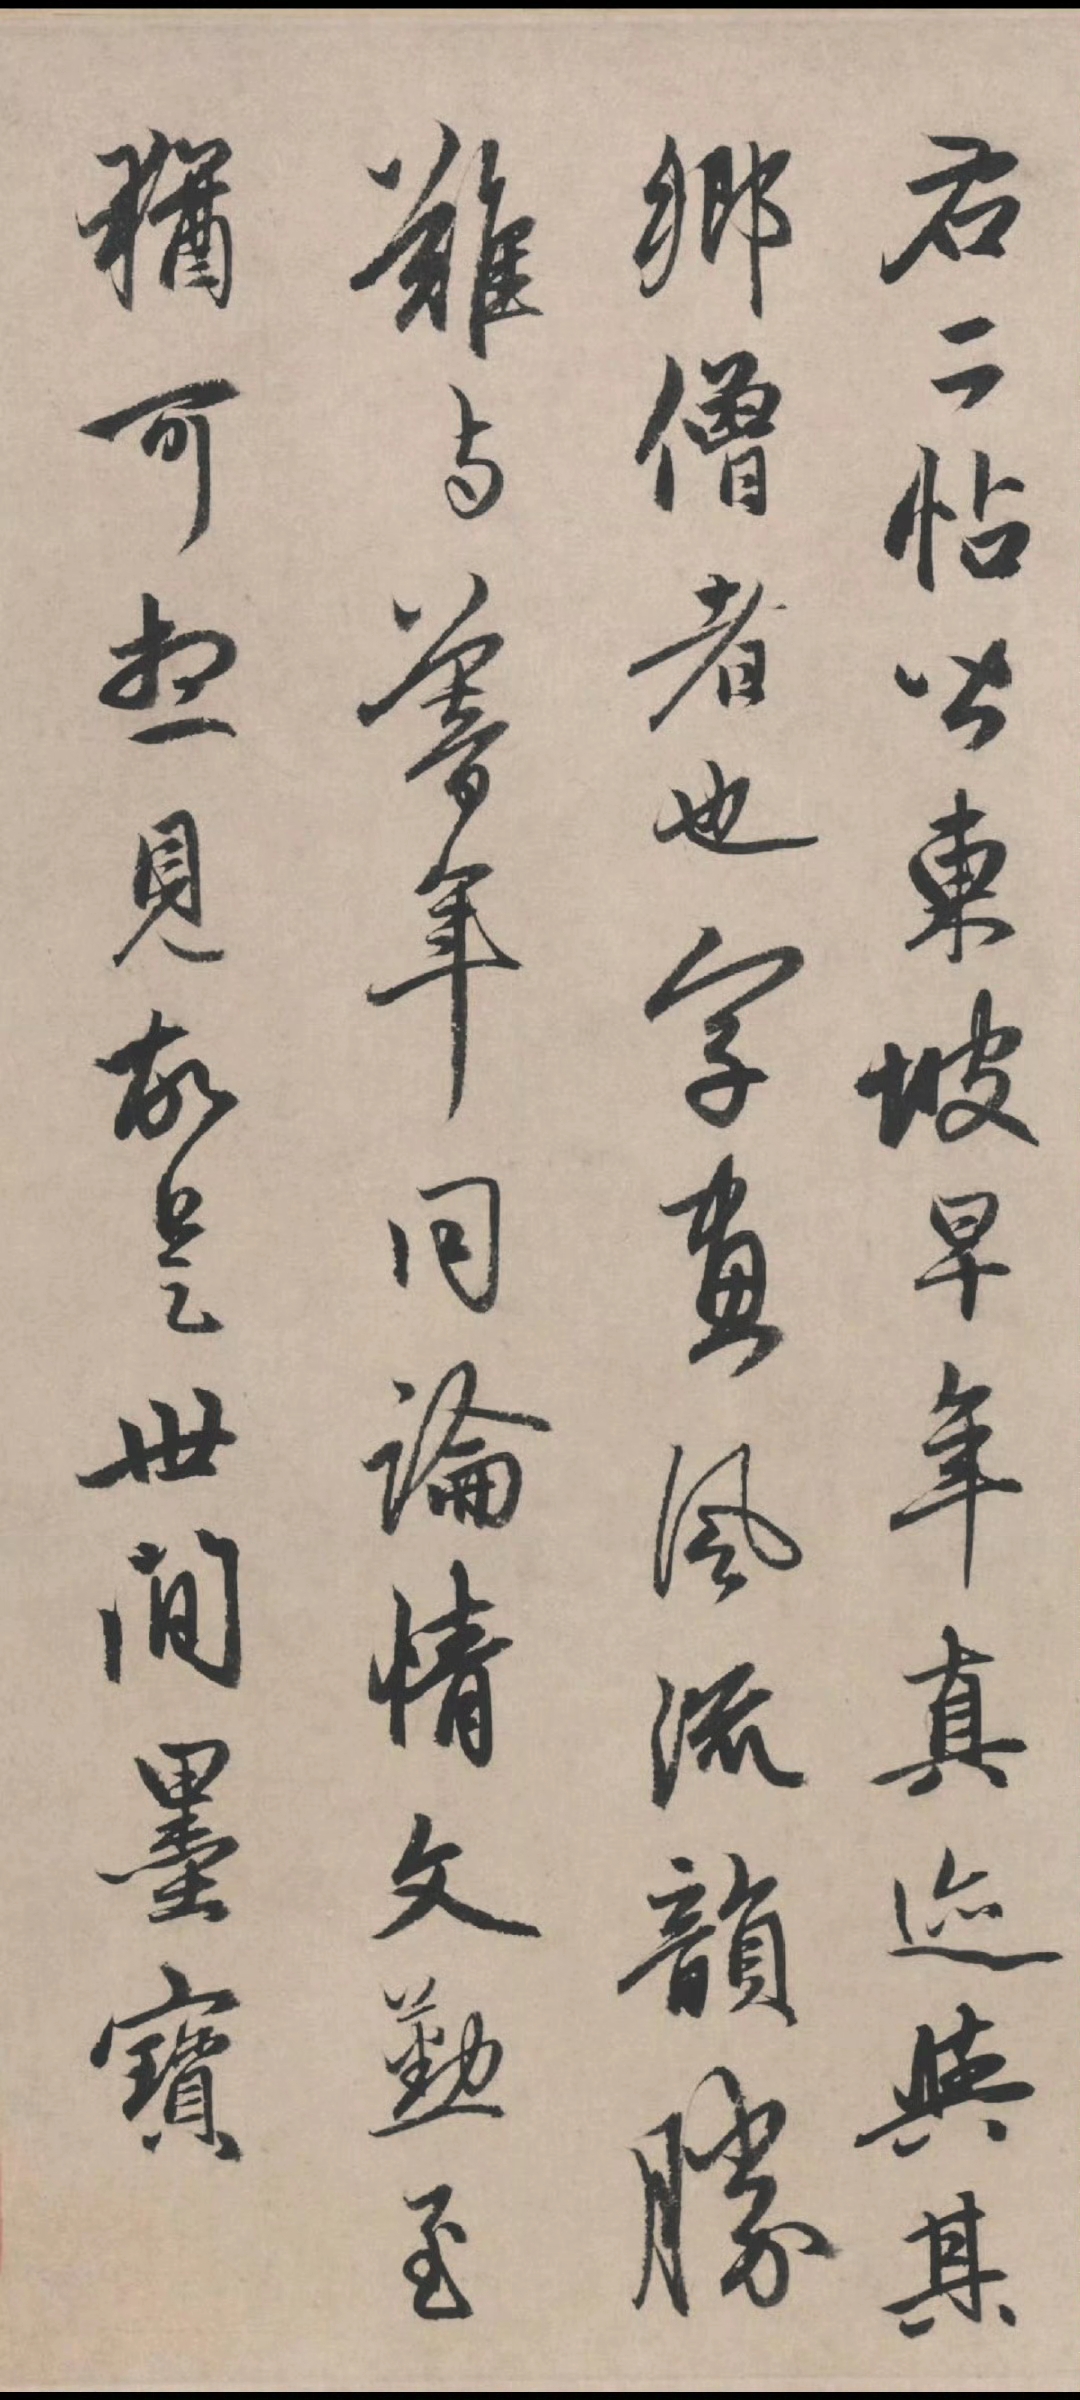 右二帖皆東坡早年真迹與其
鄉僧者也字畫風流韻勝
難与暮年同論情文勤至
猶可想見故是世間墨寶